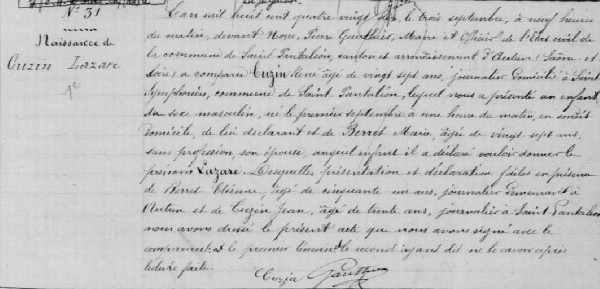 N° 31
Naissance de
Cuzin Lazare
1°
L'an mil huit cent quatre vingt dix, le trois septembre, à neuf heures
du matin, devant Nous, Pierre Gauthier, Maire et Officier de l'Etat civil de
la commune de Saint Pantaléon, canton et arrondissement d'Autun (Saône et
Loire) a comparu Cuzin René âgé de vingt sept ans, journalier domicilié à Saint
Symphorien, commune de Saint Pantaléon, lequel nous a présenté un enfant
du sexe masculin, né le premier septembre à une heure du matin, en sondit
domicile, de lui déclarant et de Berret Marie, âgée de vingt sept ans,
sans profession, son épouse, auquel enfant il a déclaré vouloir donner le
prénom Lazare. Lesquelles présentation et déclaration faites en présence
de Etienne, âgé de cinquante un ans, journalier demeurant à
Autun et de Cuzin Jean, âgé de trente ans, journalier à Saint Pantaléon
nous avons dressé le présent acte que nous avons signé avec le
comparant et le premier témoin le second ayant dit ne le savoir après
lecture faite.
Cuzin